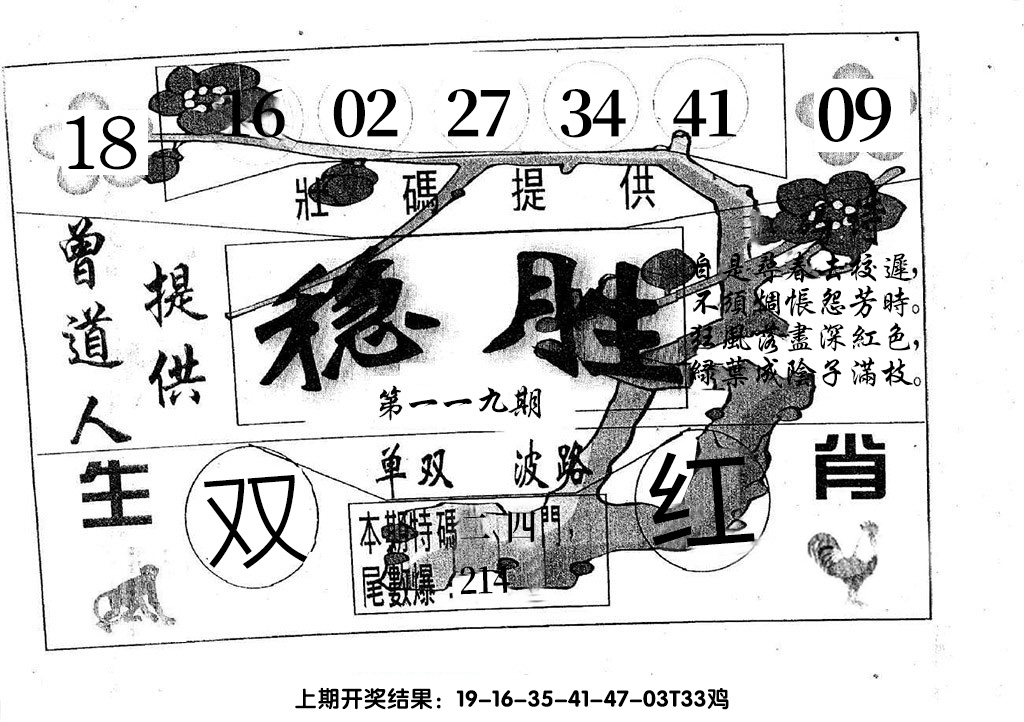 18 16 02 27 34 41 09
壯碼提供
曾道人
提供
稳胜
第一一九期
自是尋春去校遲，
不須惆悵怨芳時。
狂風落盡深紅色，
綠葉成陰子滿枝。
单双 波路
生肖
双 红
本期特碼二、四門，
尾數爆：214
上期开奖结果：19-16-35-41-47-03T33鸡